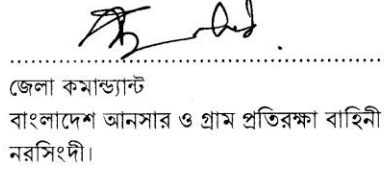 জেলা কমান্ড্যান্ট
বাংলাদেশ আনসার ও গ্রাম প্রতিরক্ষা বাহিনী
নরসিংদী।